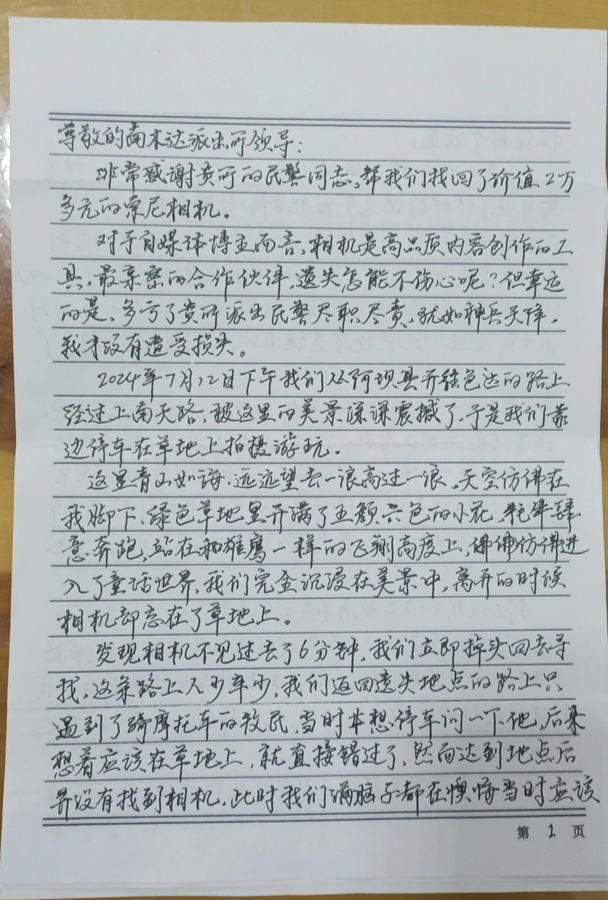 尊敬的南木达派出所领导：
非常感谢贵所的民警同志，帮我们找回了价值2万
多元的索尼相机。
对于自媒体博主而言，相机是高品质内容创作的工
具，最亲密的合作伙伴，遗失怎能不伤心呢？但幸运
的是，多亏了贵所派出民警尽职尽责，犹如神兵天降，
我才没有遭受损失。
2024年7月12日下午我们从阿坝县开往色达的路上
经过上南天路，被这里的美景深深震撼了，于是我们靠
边停车在草地上拍摄游玩。
这里青山如海，远远望去一浪高过一浪，天空仿佛在
我脚下，绿色草地里开满了五颜六色的小花，牦牛肆
意奔跑，站在和雄鹰一样的飞翔高度上，佛佛仿佛进
入了童话世界，我们完全沉浸在美景中，离开的时候
相机却忘在了草地上。
发现相机不见过去了6分钟，我们立即掉头回去寻
找，这条路上人少车少，我们返回遗失地点的路上只
遇到了骑摩托车的牧民，当时本想停车问一下他，后来
想着应该在草地上，就直接错过了，然而达到地点后
并没有找到相机，此时我们满脑子都在懊悔当时应该
第 1 页